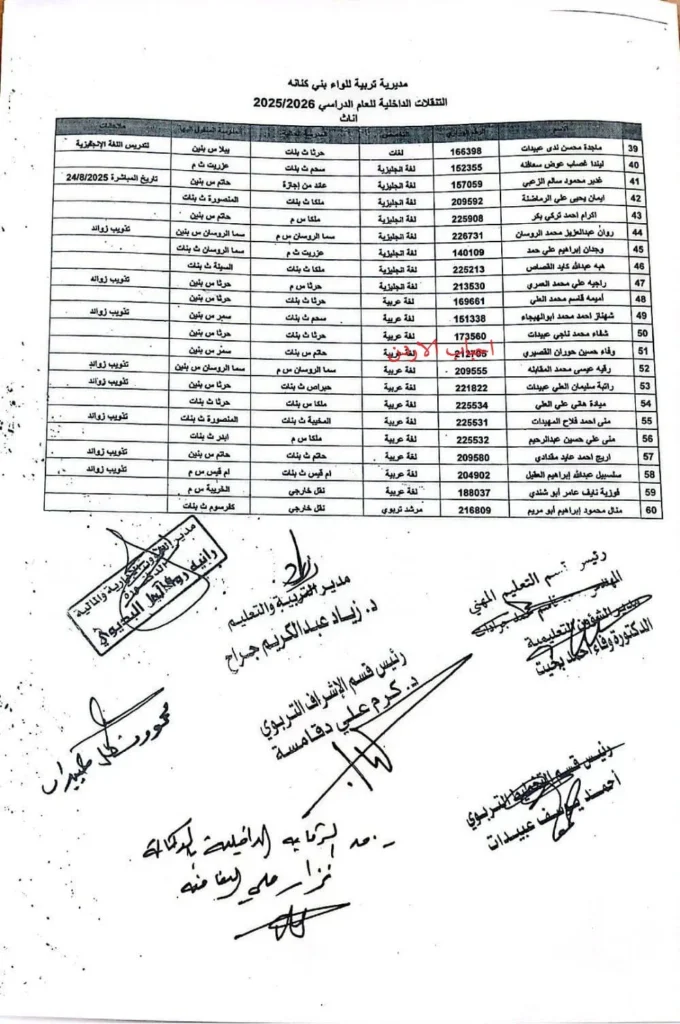 مديرية تربية للواء بني كنانه
التنقلات الداخلية للعام الدراسي 2025/2026
اناث
39 ماجدة محسن ندى عبيدات 166398 لغات حرثا ث بنات يبلا س بنين لتدريس اللغة الإنجليزية
40 ليندا غصاب عوض سمافنه 152355 لغة انجليزية سحم ث بنات عزريت ث م
41 غدير محمود سالم الزعبي 157059 لغة انجليزية عائد من إجازة حاتم س بنين تاريخ المباشرة 24/8/2025
42 ايمان يحيى علي الرماضنة 209592 لغة انجليزية ملكا ث بنات المنصورة ث بنات
43 اكرام احمد تركي بكر 225908 لغة انجليزية ملكا س م حاتم س بنين
44 روان عبدالعزيز محمد الروسان 226731 لغة انجليزية سما الروسان س م سما الروسان س بنين تذويب زوائد
45 وجدان إبراهيم علي حمد 140109 لغة انجليزية عزريت ث م سما الروسان ث بنات
46 هبه عبدالله كايد القصاص 225213 لغة انجليزية ملكا ث بنات ث بنات
47 راجيه علي محمد العمري 213530 لغة انجليزية حرثا س م حرثا س بنين تذويب زوائد
48 أميمه قاسم محمد العلي 169661 لغة عربية حرثا ث بنات حرثا س بنين
49 شهناز احمد محمد ابوالهيجاء 151338 لغة عربية سحم ث بنات سمر س بنين تذويب زوائد
50 شفاء محمد ناجي عبيدات 173560 لغة عربية حرثا ث بنات حرثا س بنين
51 وفاء حسين حوران القصيري 212706 لغة عربية حاتم س بنات سمر س بنين
52 رقيه عيسى محمد المقابله 209555 لغة عربية سما الروسان س م سما الروسان س بنين تذويب زوائد
53 راتبة سليمان العلي عبيدات 221822 لغة عربية حبراص ث بنات حرثا س بنين تذويب زوائد
54 ميادة هاني علي العلي 225534 لغة عربية ملكا س بنات حرثا ث بنات
55 منى احمد فلاح المهيدات 225531 لغة عربية المخيبة ث بنات المنصورة ث بنات تذويب زوائد
56 منى علي حسين عبدالرحيم 225532 لغة عربية ملكا س م ابدر ث بنات
57 اريج احمد عايد مقدادي 209580 لغة عربية حاتم ث بنات حاتم س بنين تذويب زوائد
58 سلسبيل عبدالله إبراهيم العقيل 204902 لغة عربية ام قيس ث بنات ام قيس س م تذويب زوائد
59 فوزية نايف عامر أبو شندي 188037 لغة عربية نقل خارجي الخريبة س م
60 منال محمود إبراهيم أبو مريم 216809 مرشد تربوي نقل خارجي كفرسوم ث بنات
رئيس قسم التعليم المهني
مدير الشؤون التعليمية
الدكتورة وفاء احمد بخيت
مدير التربية والتعليم
د. زياد عبدالكريم جراح
رئيس قسم الإشراف التربوي
د. كرم علي دقامسة
رئيس قسم التخطيط التربوي
أحمد يوسف عبيدات
ر.حد الرقابه الداخلية بالوكالة
نزار علي